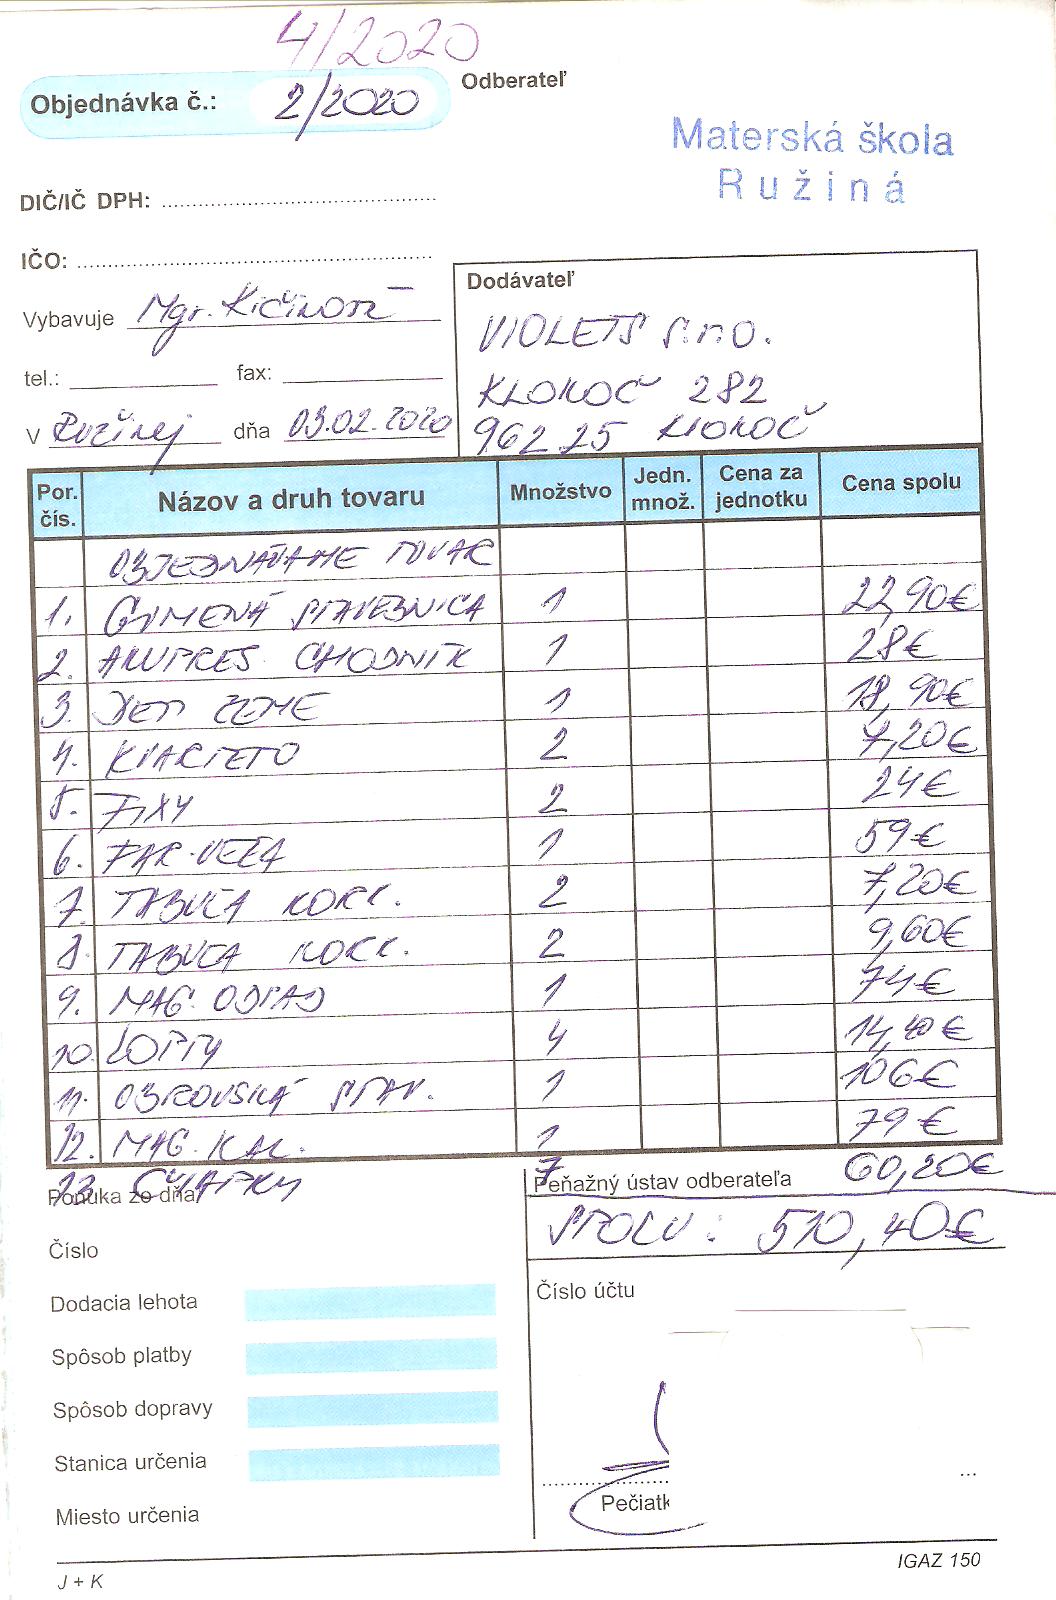 4/2020
Objednávka č.: 2/2020
Odberateľ
Materská škola
Ružiná
DIČ/IČ DPH:
IČO:
Vybavuje Mgr. Kičinová
tel.: fax:
V Ružinej dňa 03.02.2020
Dodávateľ
VIOLETS s.r.o.
KLOKOČ 282
962 25 KLOKOČ
Por. čís. Názov a druh tovaru Množstvo Jedn. množ. Cena za jednotku Cena spolu
OBJEDNÁVAME TOVAR
1. GUMENÁ STAVEBNICA 1 22,90€
2. AKUPRES. CHODNÍK 1 28€
3. DEŇ ZEME 1 18,90€
4. KVARTETO 2 7,20€
5. FIXY 2 24€
6. FAR. VEĽA 1 59€
7. TABUĽA KORK. 2 7,20€
8. TABUĽA KORK. 2 9,60€
9. MAG. ODPAD 1 74€
10. LOPTY 4 14,40€
11. OBROVSKÁ STAV. 1 106€
12. MAG. KAL. 1 79€
13. 7 60,20€
Ponuka zo dňa
Peňažný ústav odberateľa
SPOLU: 510,40€
Číslo
Číslo účtu
Dodacia lehota
Spôsob platby
Spôsob dopravy
Stanica určenia
Miesto určenia
Pečiatk
J + K
IGAZ 150